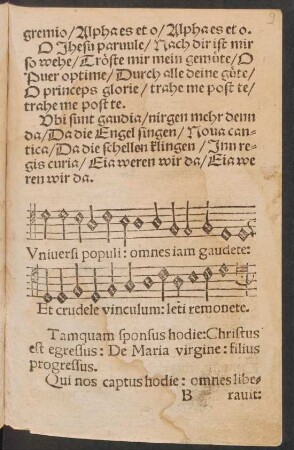 gremio/Alpha es et o/Alpha es et o.
O Jhesu paruule/Nach dir ist mir
so wehe/Tröste mir mein gemüte/O
Puer optime/Durch alle deine güte/
O princeps glorie/trahe me post te/
trahe me post te.
Vbi sunt gaudia/nirgen mehr denn
da/Da die Engel singen/Noua can-
tica/Da die schellen klingen/Inn re-
gis curia/Eia weren wir da/Eia we
ren wir da.
Vniuersi populi: omnes iam gaudete:
Et crudele vinculum: leti remonete.
Tamquam sponsus hodie: Christus
est egressus: De Maria virgine: filius
progressus.
Qui nos captus hodie: omnes libe-
B rauit: